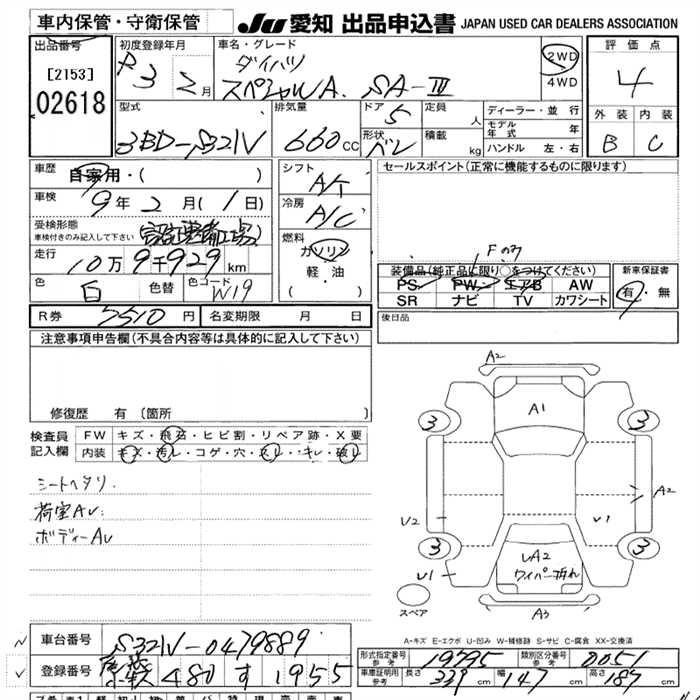 車内保管・守衛保管 JU 愛知 出品申込書 JAPAN USED CAR DEALERS ASSOCIATION
出品番号 初度登録年月 車名・グレード 評価点
[2153] R3 2月 ダイハツ 2WD 4
02618 スペシャルA. SA-III 4WD 外装 内装
型式 排気量 ドア 定員 ディーラー・並行 B C
3BD-S321V 660cc 5 人 モデル年式 年
形状 バン 積載 kg ハンドル 左・右
車歴 自家用・( ) シフト A/T セールスポイント(正常に機能するものに限ります)
車検 9年 2月( 1日) 冷房 A/C
受検形態
車検付きのみ記入して下さい
走行 10万9千929km 燃料 ガソリン 軽・油 ・( )
装備品(純正品に限り○をつけてください) 新車保証書
色 白 色替 色コード W19 PS PW エアB AW 有・無
SR ナビ TV カワシート
R券 7510円 名変期限 月 日 後日品
注意事項申告欄(不具合内容等は具体的に記入して下さい)
修復歴 有 〔箇所 〕
検査員 FW キズ・飛石・ヒビ割・リペア跡・X要
記入欄 内装 キズ・汚レ・コゲ・穴・スレ・キレ・破レ
シートヘタリ
荷室AU:
ボディーAU
A2
A1
3 3
A2
U2 U1
3 3
UA2
ワイパー折れ
U1
スペア
A3
A-キズ E-エクボ U-凹み W-補修跡 S-サビ C-腐食 XX-交換済
車台番号 S321V-0479889
登録番号 480 す 1955
形式指定番号 参考 19795 類別区分番号 参考 0051
車庫証明用 参考 長さ 339cm 幅 147cm 高さ 189cm